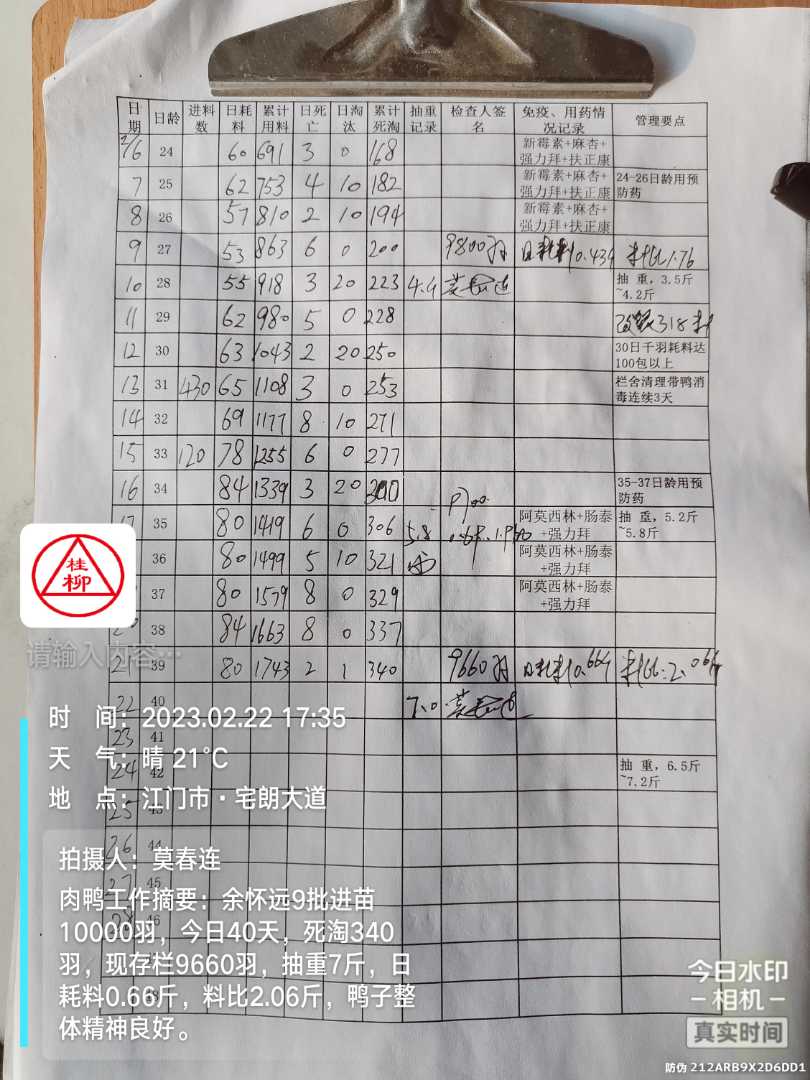 日期 日龄 进料数 日耗料 累计用料 日死亡 日淘汰 累计死淘 抽重记录 检查人签名 免疫、用药情况记录 管理要点
2/6 24 60 691 3 0 168 新霉素+麻杏+强力拜+扶正康
7 25 62 753 4 10 182 新霉素+麻杏+强力拜+扶正康 24-26日龄用预防药
8 26 57 810 2 10 194 新霉素+麻杏+强力拜+扶正康
9 27 53 863 6 0 200 9800羽 日耗料0.434 料比1.76
10 28 55 918 3 20 223 4.4 莫春连 抽 重,3.5斤~4.2斤
11 29 62 980 5 0 228 318料
12 30 63 1043 2 20 250 30日千羽耗料达100包以上
13 31 430 65 1108 3 0 253 栏舍清理带鸭消毒连续3天
14 32 69 1177 8 10 271
15 33 120 78 1255 6 0 277
16 34 84 1339 3 20 300 35-37日龄用预防药
17 35 80 1419 6 0 306 5.8 阿莫西林+肠泰+强力拜 抽 重,5.2斤~5.8斤
36 80 1499 5 10 321 阿莫西林+肠泰+强力拜
37 80 1579 8 0 329 阿莫西林+肠泰+强力拜
38 84 1663 8 0 337
21 39 80 1743 2 1 340 9660羽 日耗料0.664 料比:2.06
22 40 7.0 莫春连
23 41
24 42 抽 重,6.5斤~7.2斤
25 43
26 44
27 45
28 46
桂柳
请输入内容…
时 间:2023.02.22 17:35
天 气:晴 21℃
地 点:江门市·宅朗大道
拍摄人:莫春连
肉鸭工作摘要:余怀远9批进苗
10000羽,今日40天,死淘340
羽,现存栏9660羽,抽重7斤,日
耗料0.66斤,料比2.06斤,鸭子整
体精神良好。
今日水印
-相机-
真实时间
防伪 212ARB9X2D6DD1